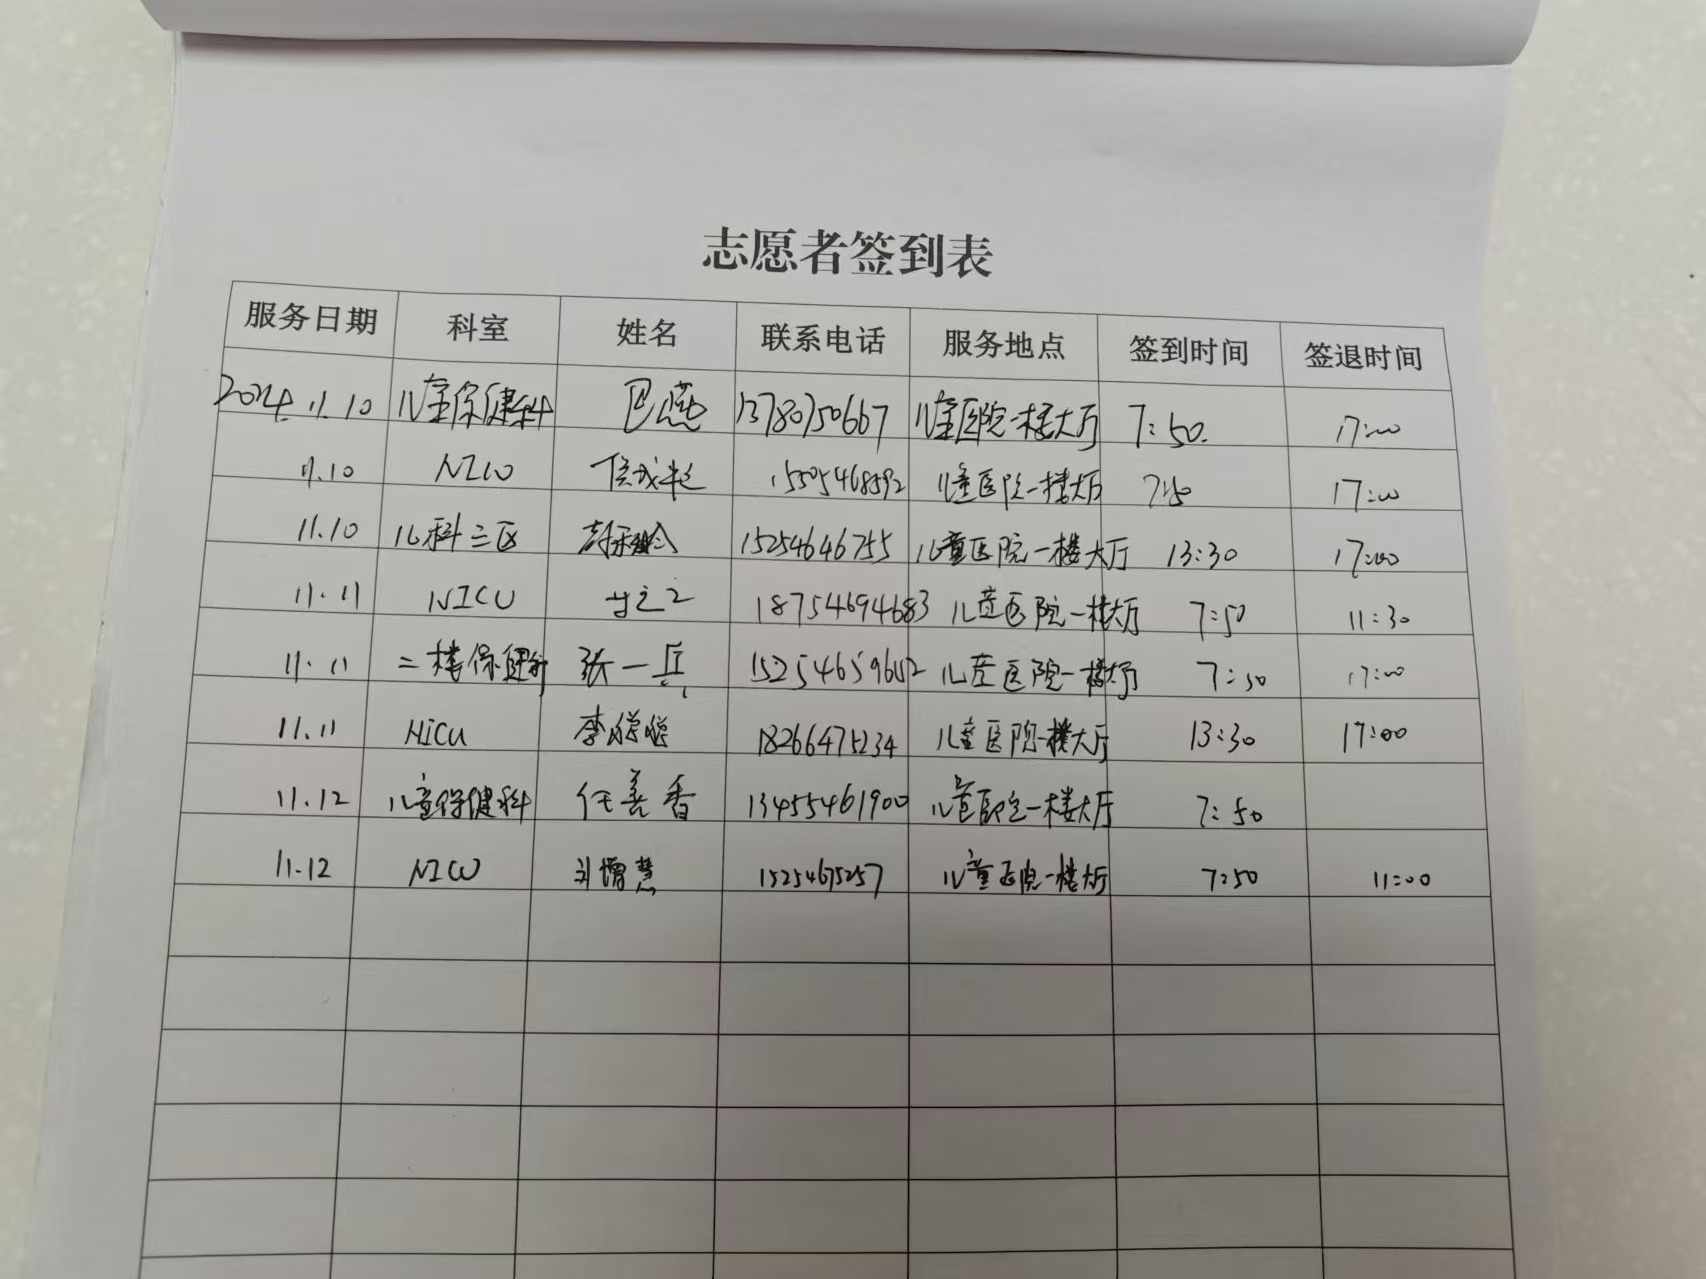 志愿者签到表
服务日期 科室 姓名 联系电话 服务地点 签到时间 签退时间
2024.11.10 儿童保健科 巴燕 13780750667 儿童医院一楼大厅 7:50. 17:00
11.10 NICU 15505468592 儿童医院一楼大厅 7:50 17:00
11.10 儿科三区 15254646755 儿童医院一楼大厅 13:30 17:00
11.11 NICU 18754694683 儿童医院一楼大厅 7:50 11:30
11.11 二楼保健科 张一兵 儿童医院一楼大厅 7:50 17:00
11.11 NiCU 李 18266475234 儿童医院一楼大厅 13:30 17:00
11.12 儿童保健科 任善香 13455461900 儿童医院一楼大厅 7:50
11.12 NICU 刘增慧 15254675257 儿童医院一楼大厅 7:50 11:00